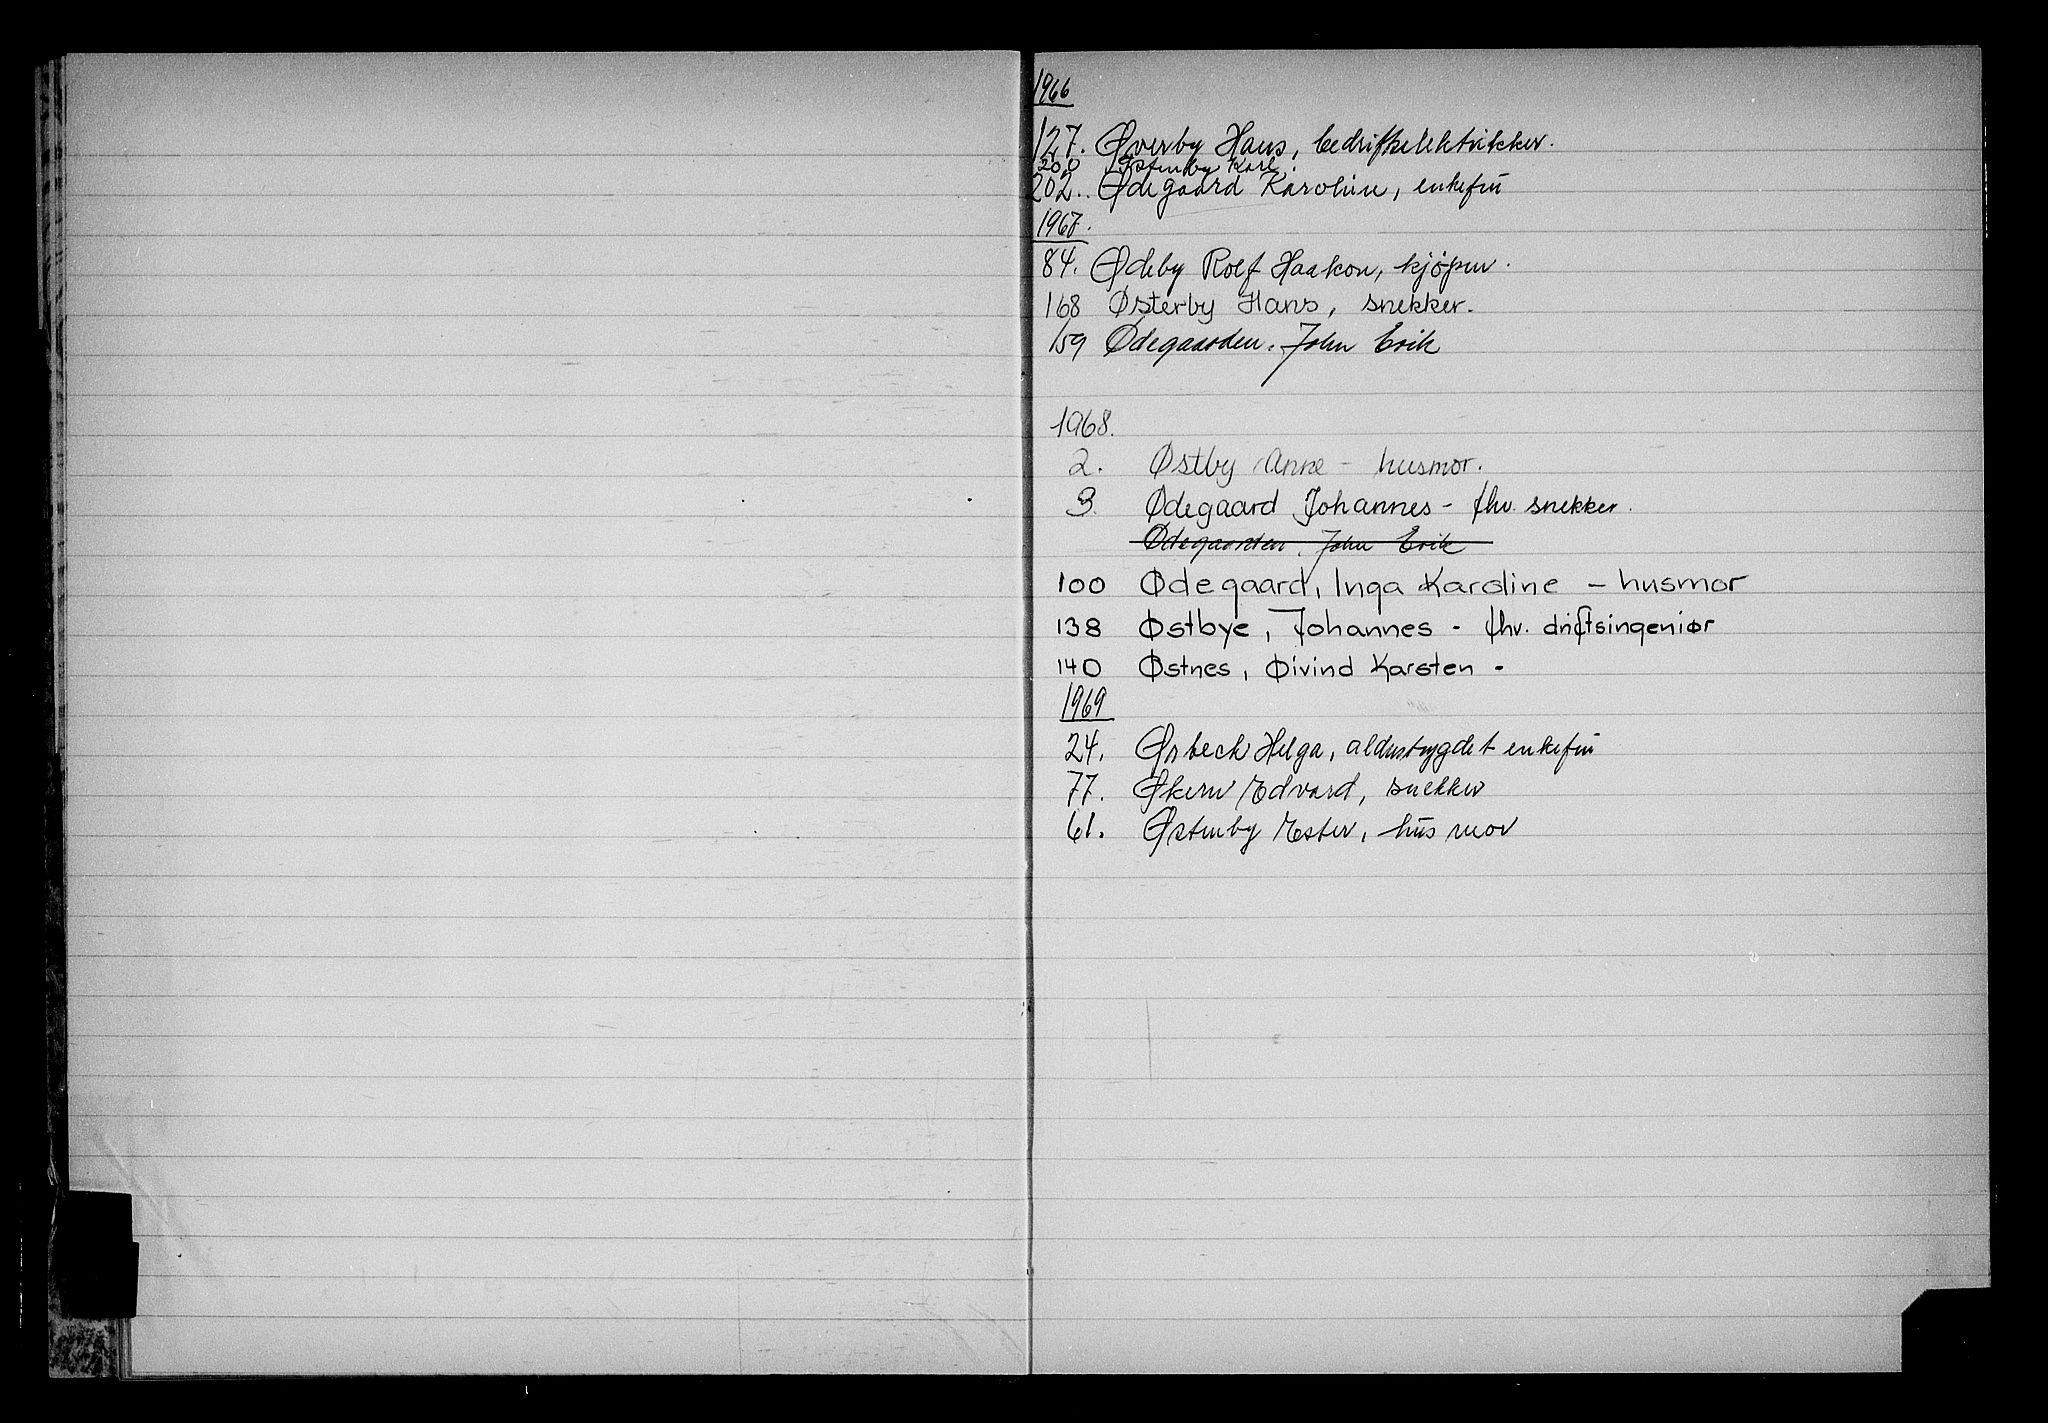 1966
127. Øverby Hans, bedriftselektrikker.
200 Østenby Karl,
202. Ødegaard Karoline, enkefrú
1967.
84. Ødeby Rolf Haakon, kjøpm.
168 Østerby Hans, snekker.
159 Ødegaarden, John Erik
1968.
2. Østby Anne - husmor.
3. Ødegaard Johannes - fhv. snekker.
Ødegaarden, John Erik
100 Ødegaard, Inga Karoline - husmor
138 Østbye, Johannes - fhv. driftsingeniør
140 Østnes, Øivind Karsten -
1969
24. Ørbeck Helga, alderstrygdet enkefrú
77. Økern Edvard, snekker
61. Østenby Ester, hús mor